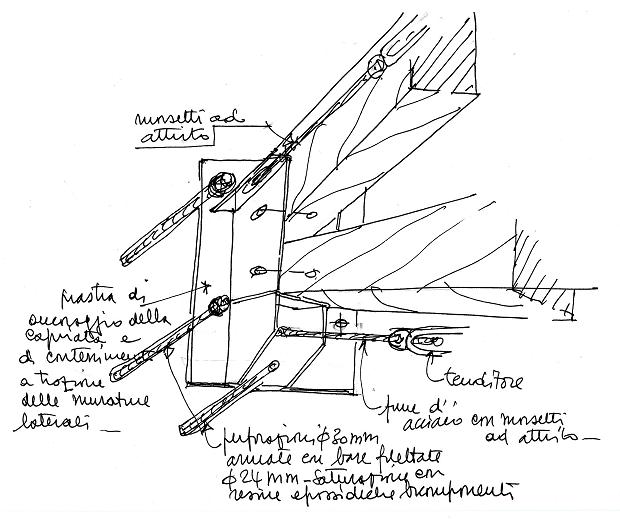 morsetti ad
attrito
piastra di
ancoraggio della
capriata e
di contenimento
a trazione
delle murature
laterali —
tenditore
fune d'
acciaio con morsetti
ad attrito —
perforazioni φ 30 mm
armate con barre filettate
φ 24 mm - Saturazione con
resine epossidiche bicomponenti